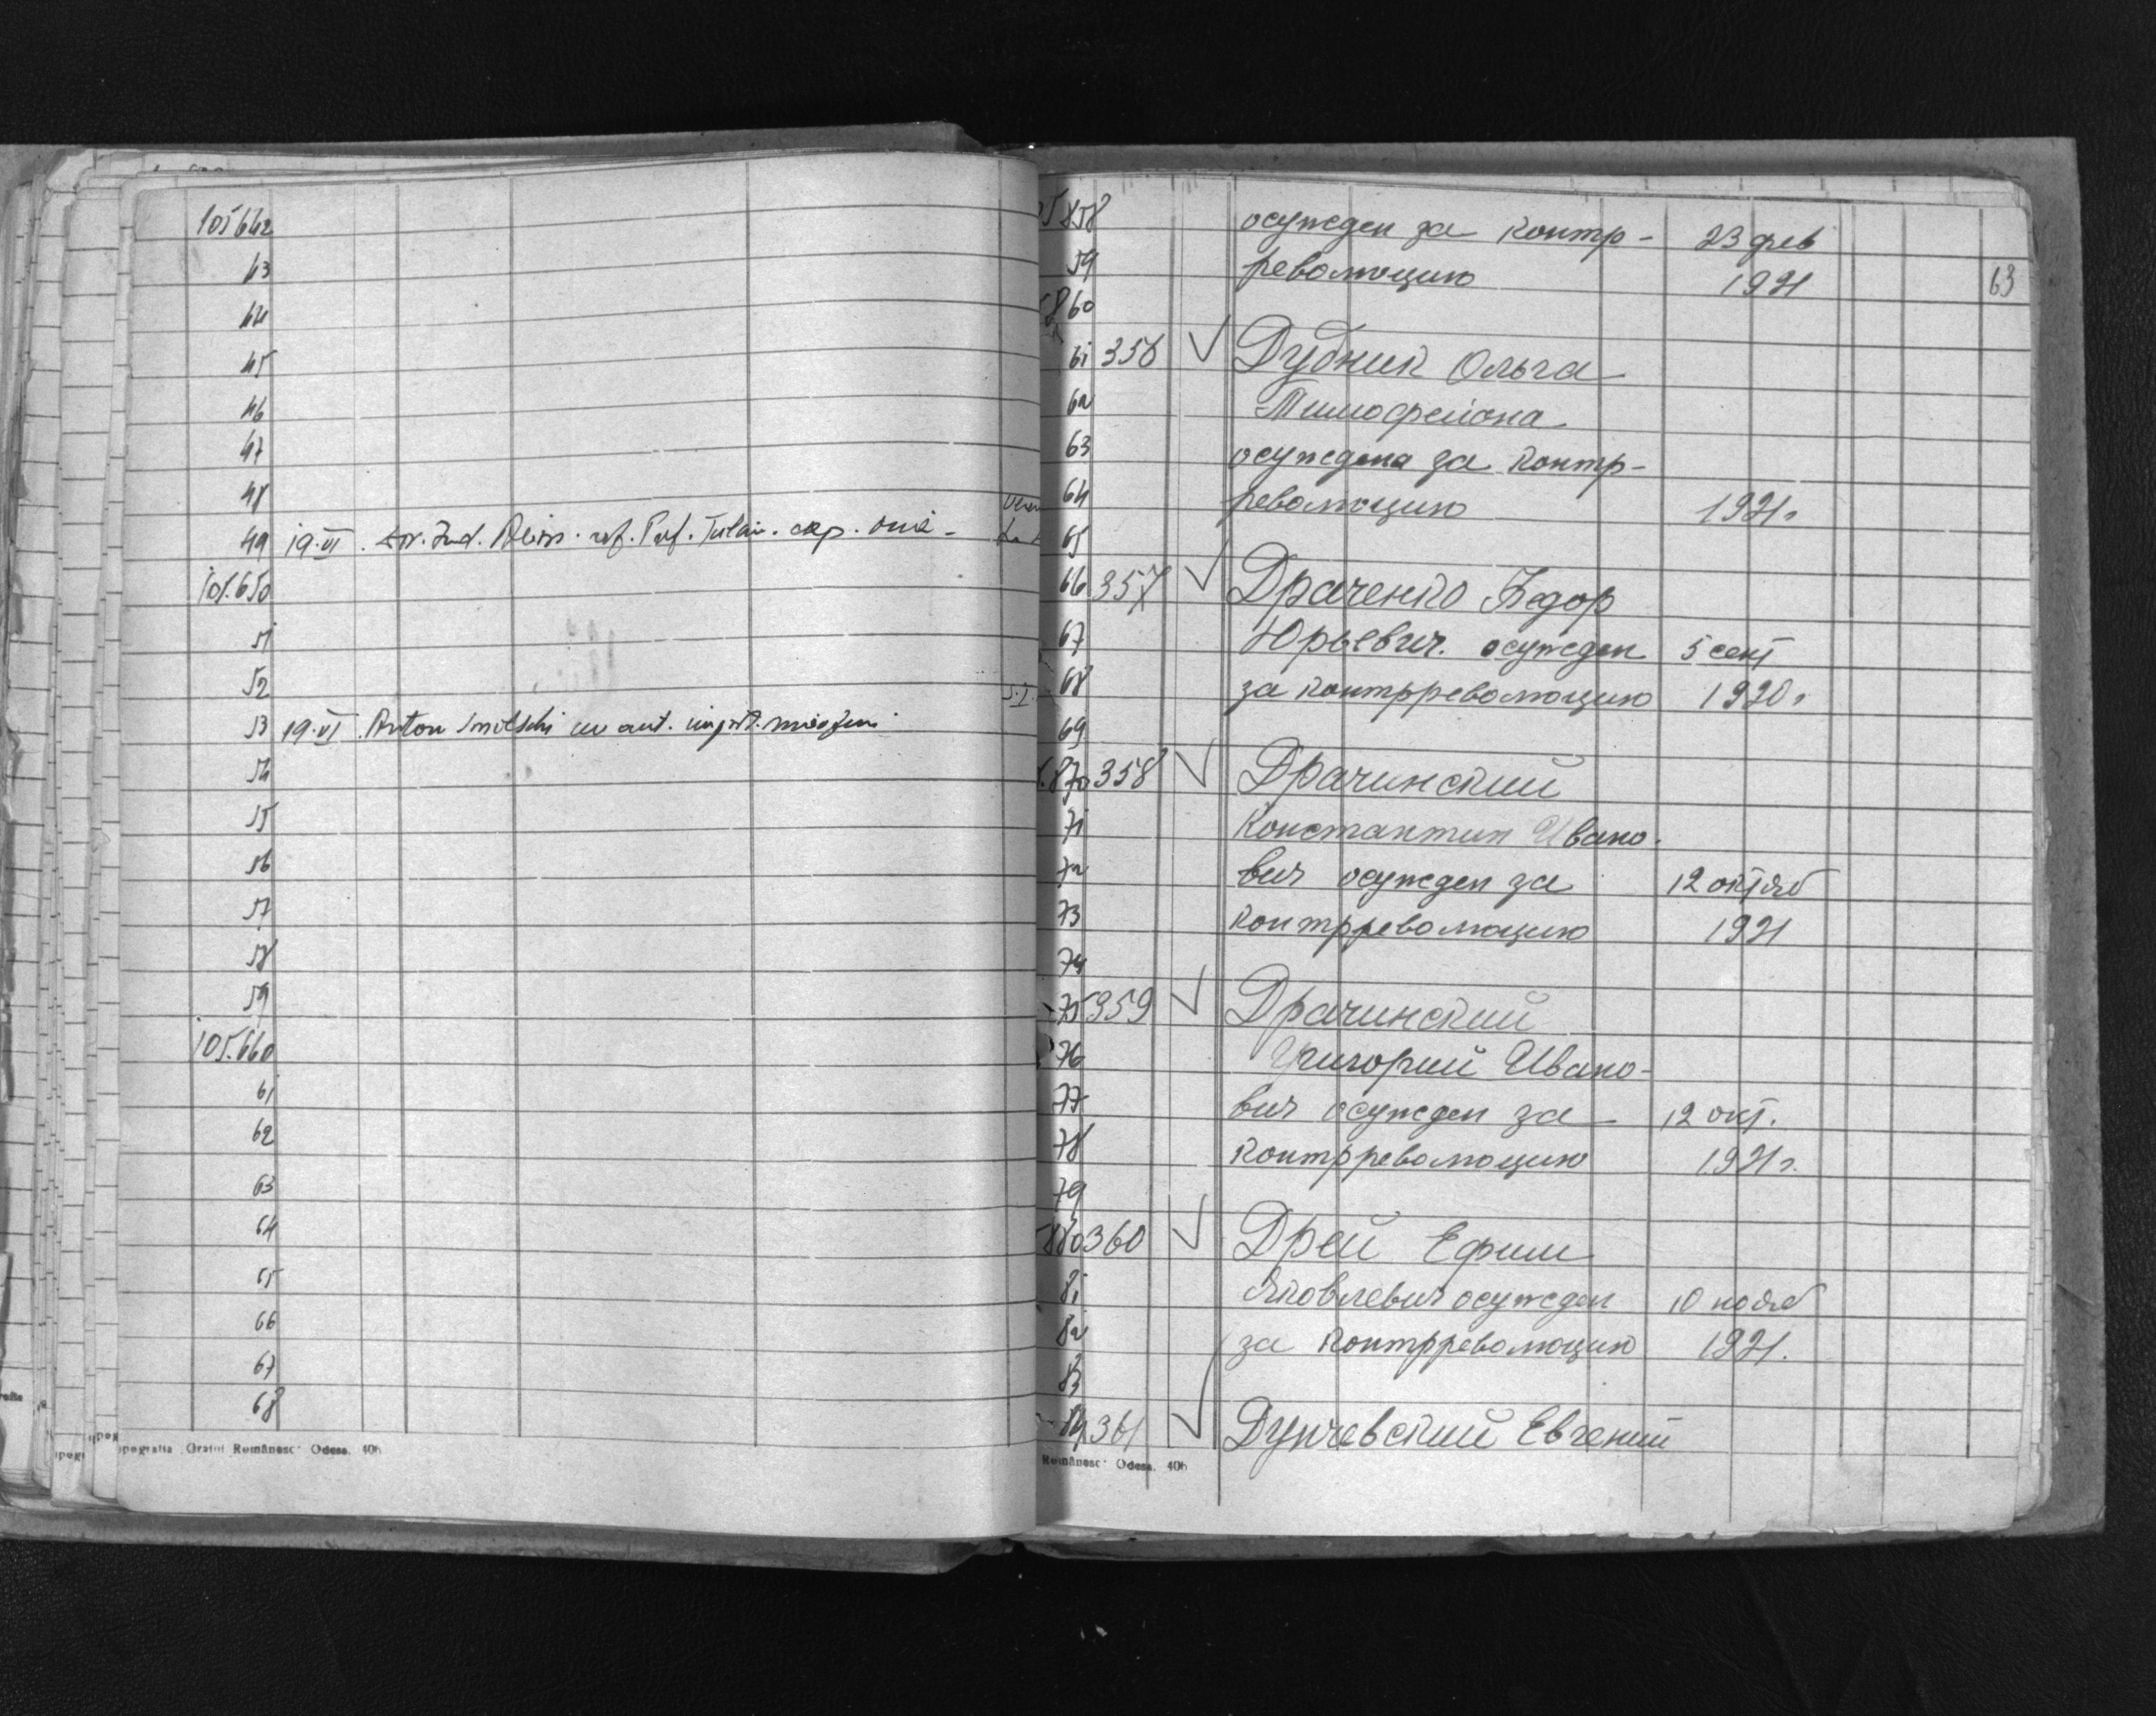 105642
43
44
45
46
47
48
49 19.VI.
105.650
51
52
53 19.VI. Anton
54
55
56
57
58
59
105.660
61
62
63
64
65
66
67
68
Românesc Odesa. 406
63
5858 осужден за контр- 23 фев
59 революцию 1921
860
61 356 ✓ Дубник Ольга
62 Тимофеевна
63 осуждена за контр-
64 революцию 1921г
65
66 357 ✓ Драченко Федор
67 Юрьевич. осужден 5 сент
68 за контрреволюцию 1920г
69
870 358 ✓ Драчинский
71 Константин Ивано-
72 вич осужден за 12 октяб
73 контрреволюцию 1921
74
75 359 ✓ Драчинский
76 Григорий Ивано-
77 вич осужден за 12 окт.
78 контрреволюцию 1921г.
79
880 360 ✓ Дрей Ефим
81 Яковлевич осужден 10 нояб
82 за контрреволюцию 1921.
83
84 361 ✓ Евгений
Românesc Odesa. 406